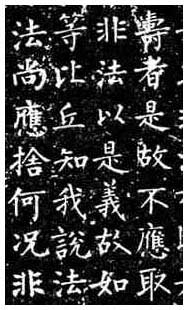 壽者是故不應取
非法以是義故如
等比丘知我說法
法尚應捨何況非